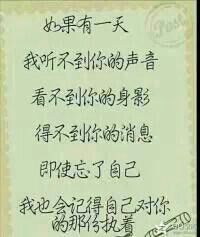 如果有一天
我听不到你的声音
看不到你的身影
得不到你的消息
即使忘了自己
我也会记得自己对你
的那份执着
Post